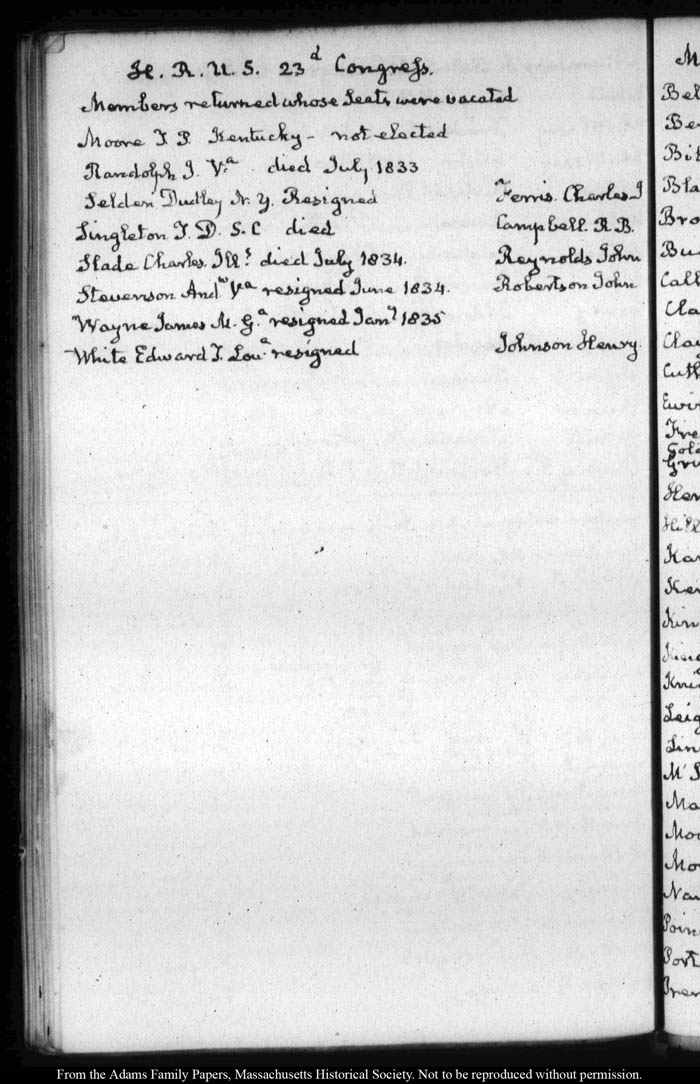 H. R. U. S. 23d Congress.
Members returned whose Seats were vacated
Moore T. P. Kentucky – not elected
Randolph J. Va. died July 1833
Selden Dudley N. Y. Resigned Ferris. Charles G
Singleton T. D. S. C died Campbell. R. B.
Slade Charles. Ills. died July 1834. Reynolds John
Stevenson Andw Va resigned June 1834. Robertson John
Wayne James M. Ga. resigned Jany 1835
White Edward D. Loua. resigned Johnson Henry.
M
Bel
Be
Bi
Bla
Bro
Bu
Call
Cla
Clay
Cuth
Ewin
Fre
Gol
Gru
Hen
Hill
Ka
Ken
Kin
King
Kni
Leig
Lin
Ma
Moo
Mo
Na
Poin
Port
Pren
From the Adams Family Papers, Massachusetts Historical Society. Not to be reproduced without permission.